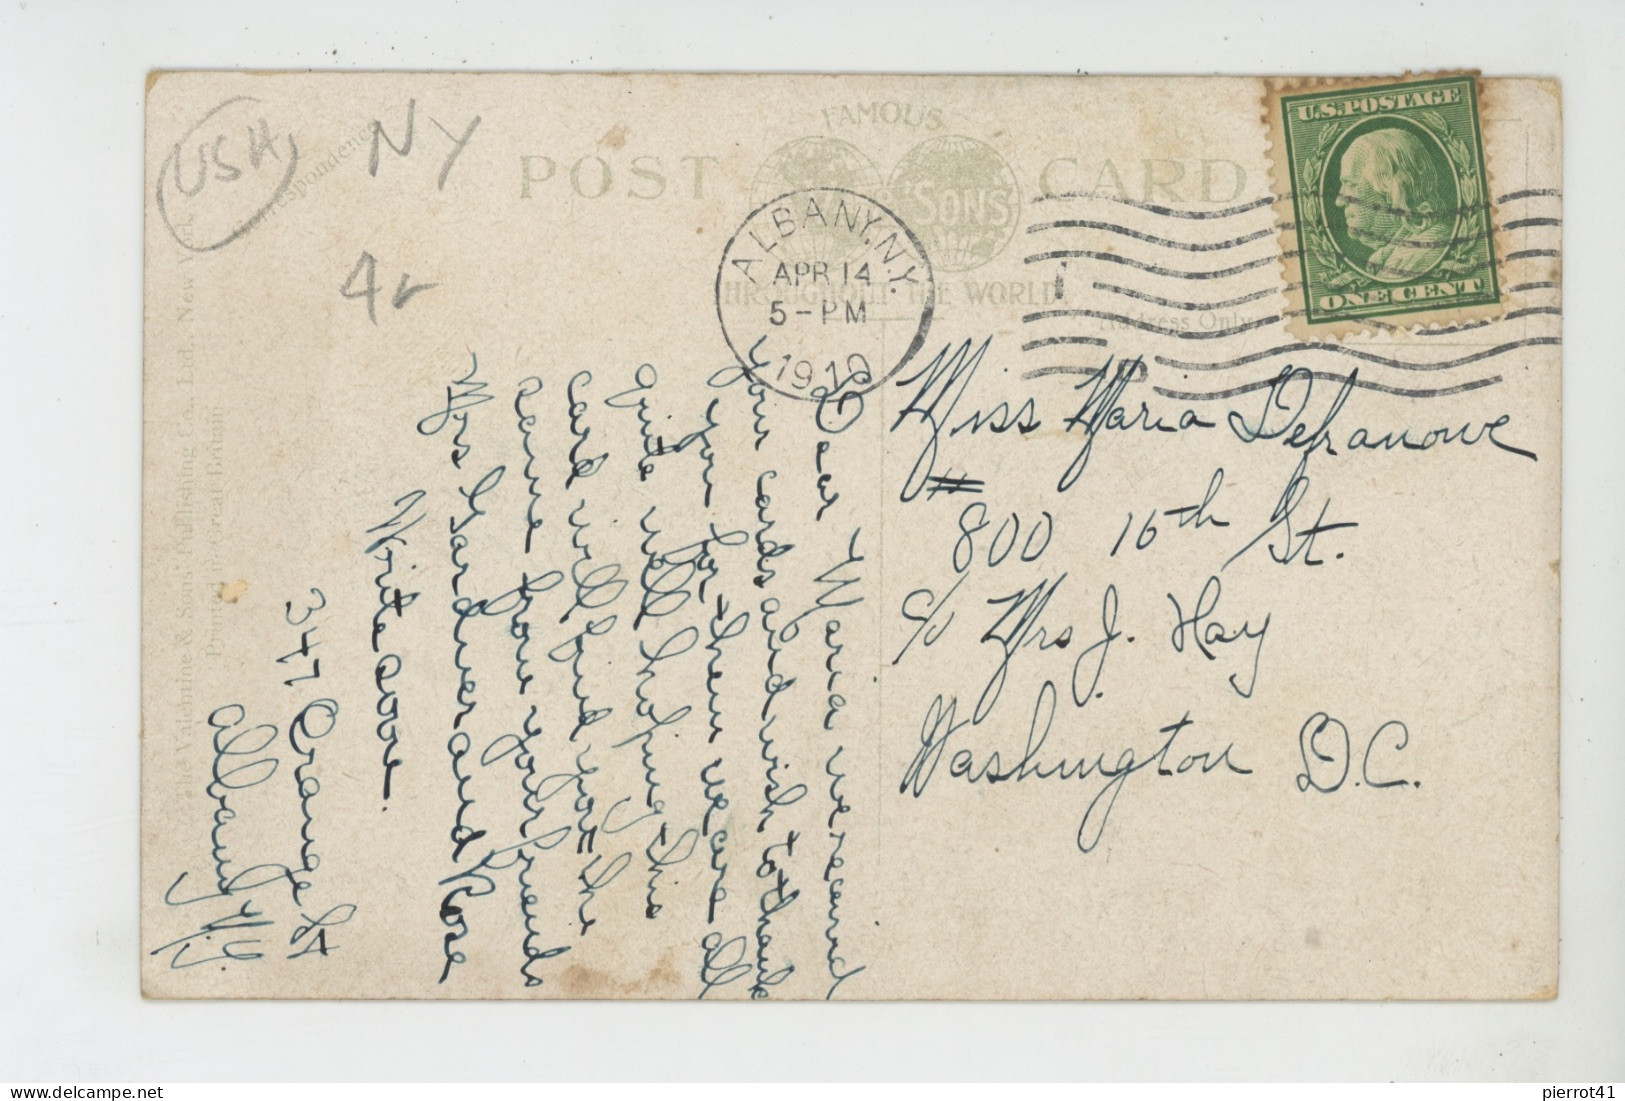 USA
NY
4v
Correspondence
POST CARD
FAMOUS
SONS
THROUGHOUT THE WORLD.
Address Only
ALBANY, N.Y.
APR 14
5-PM
1910
U.S. POSTAGE
ONE CENT
Miss Maria Dehanowe
800 16th St.
c/o Mrs J. Hay
Washington D.C.
Dear Maria we receivid
your cards and wish to thank
you for them we are all
quite well hoping this
card will find you the
same from your friends
Mrs Gardner and Rose
Write soon.
347 Orange St
Albany N.Y.
The Valentine & Sons' Publishing Co., Ltd., New York.
Printed in Great Britain
pierrot41